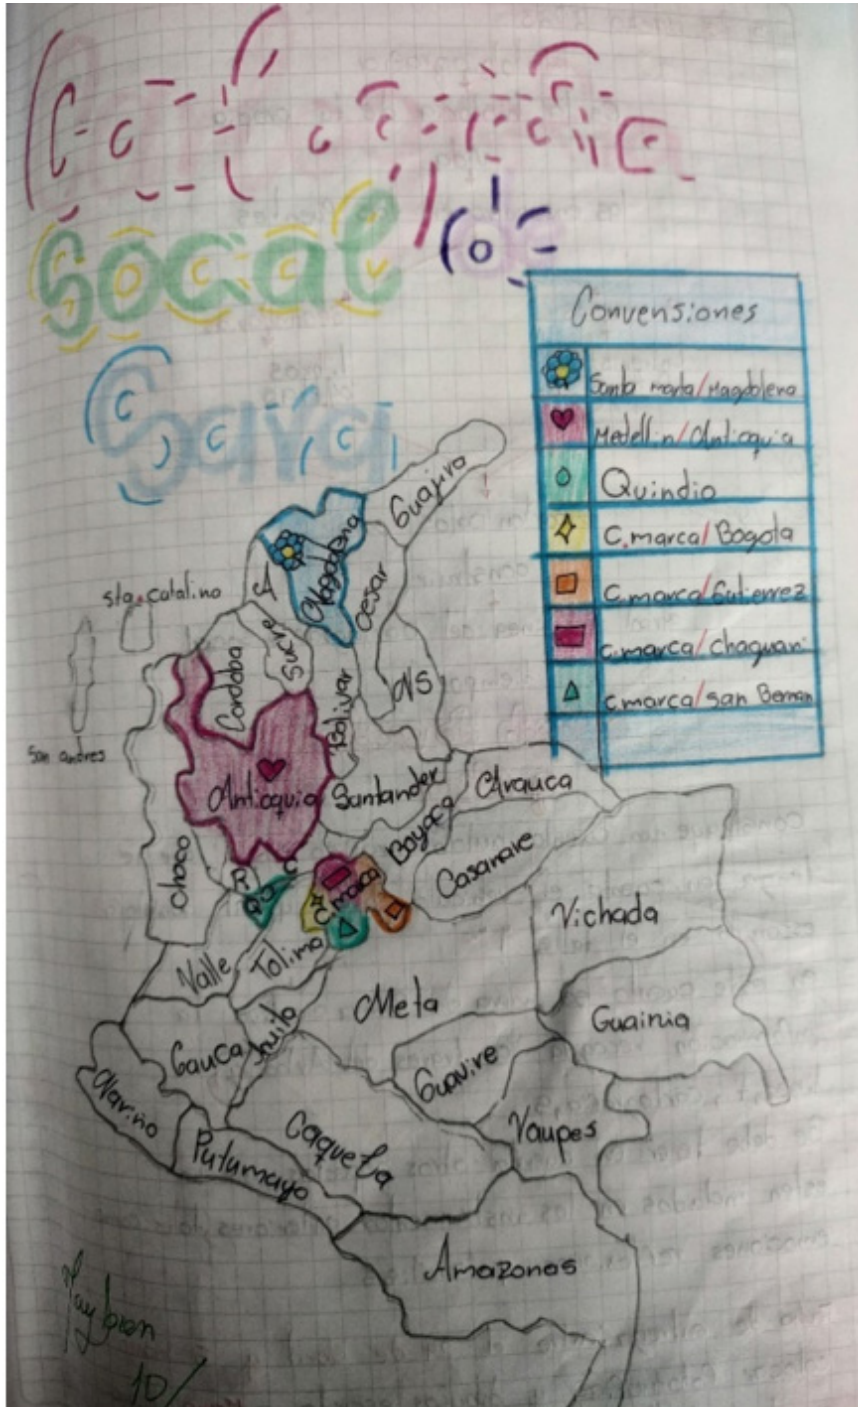 Cartografía
Social
Sara
Convensiones
Santa marta/Magdalena
Medellin/Antioquia
Quindio
C.marca/Bogota
C.marca/Gutierrez
C.marca/chaguani
C.marca/san Bernan
Guajira
Magdalena
A
cesar
sta.catalina
Sucre
Cordoba
Bolivar
NS
san andres
Antioquia
Santander
Arauca
Boyaca
Casanare
choco
C
R
QU
C.marca
Vichada
Valle
Tolima
Meta
Guainia
Cauca
huila
Guavire
Nariño
Vaupes
Caqueta
Putumayo
Amazonas
May bien
10/